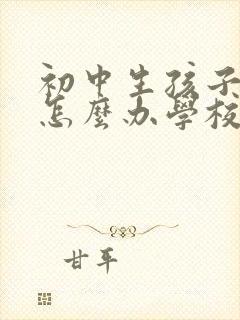 初中生孩子
怎麼办學校
甘平